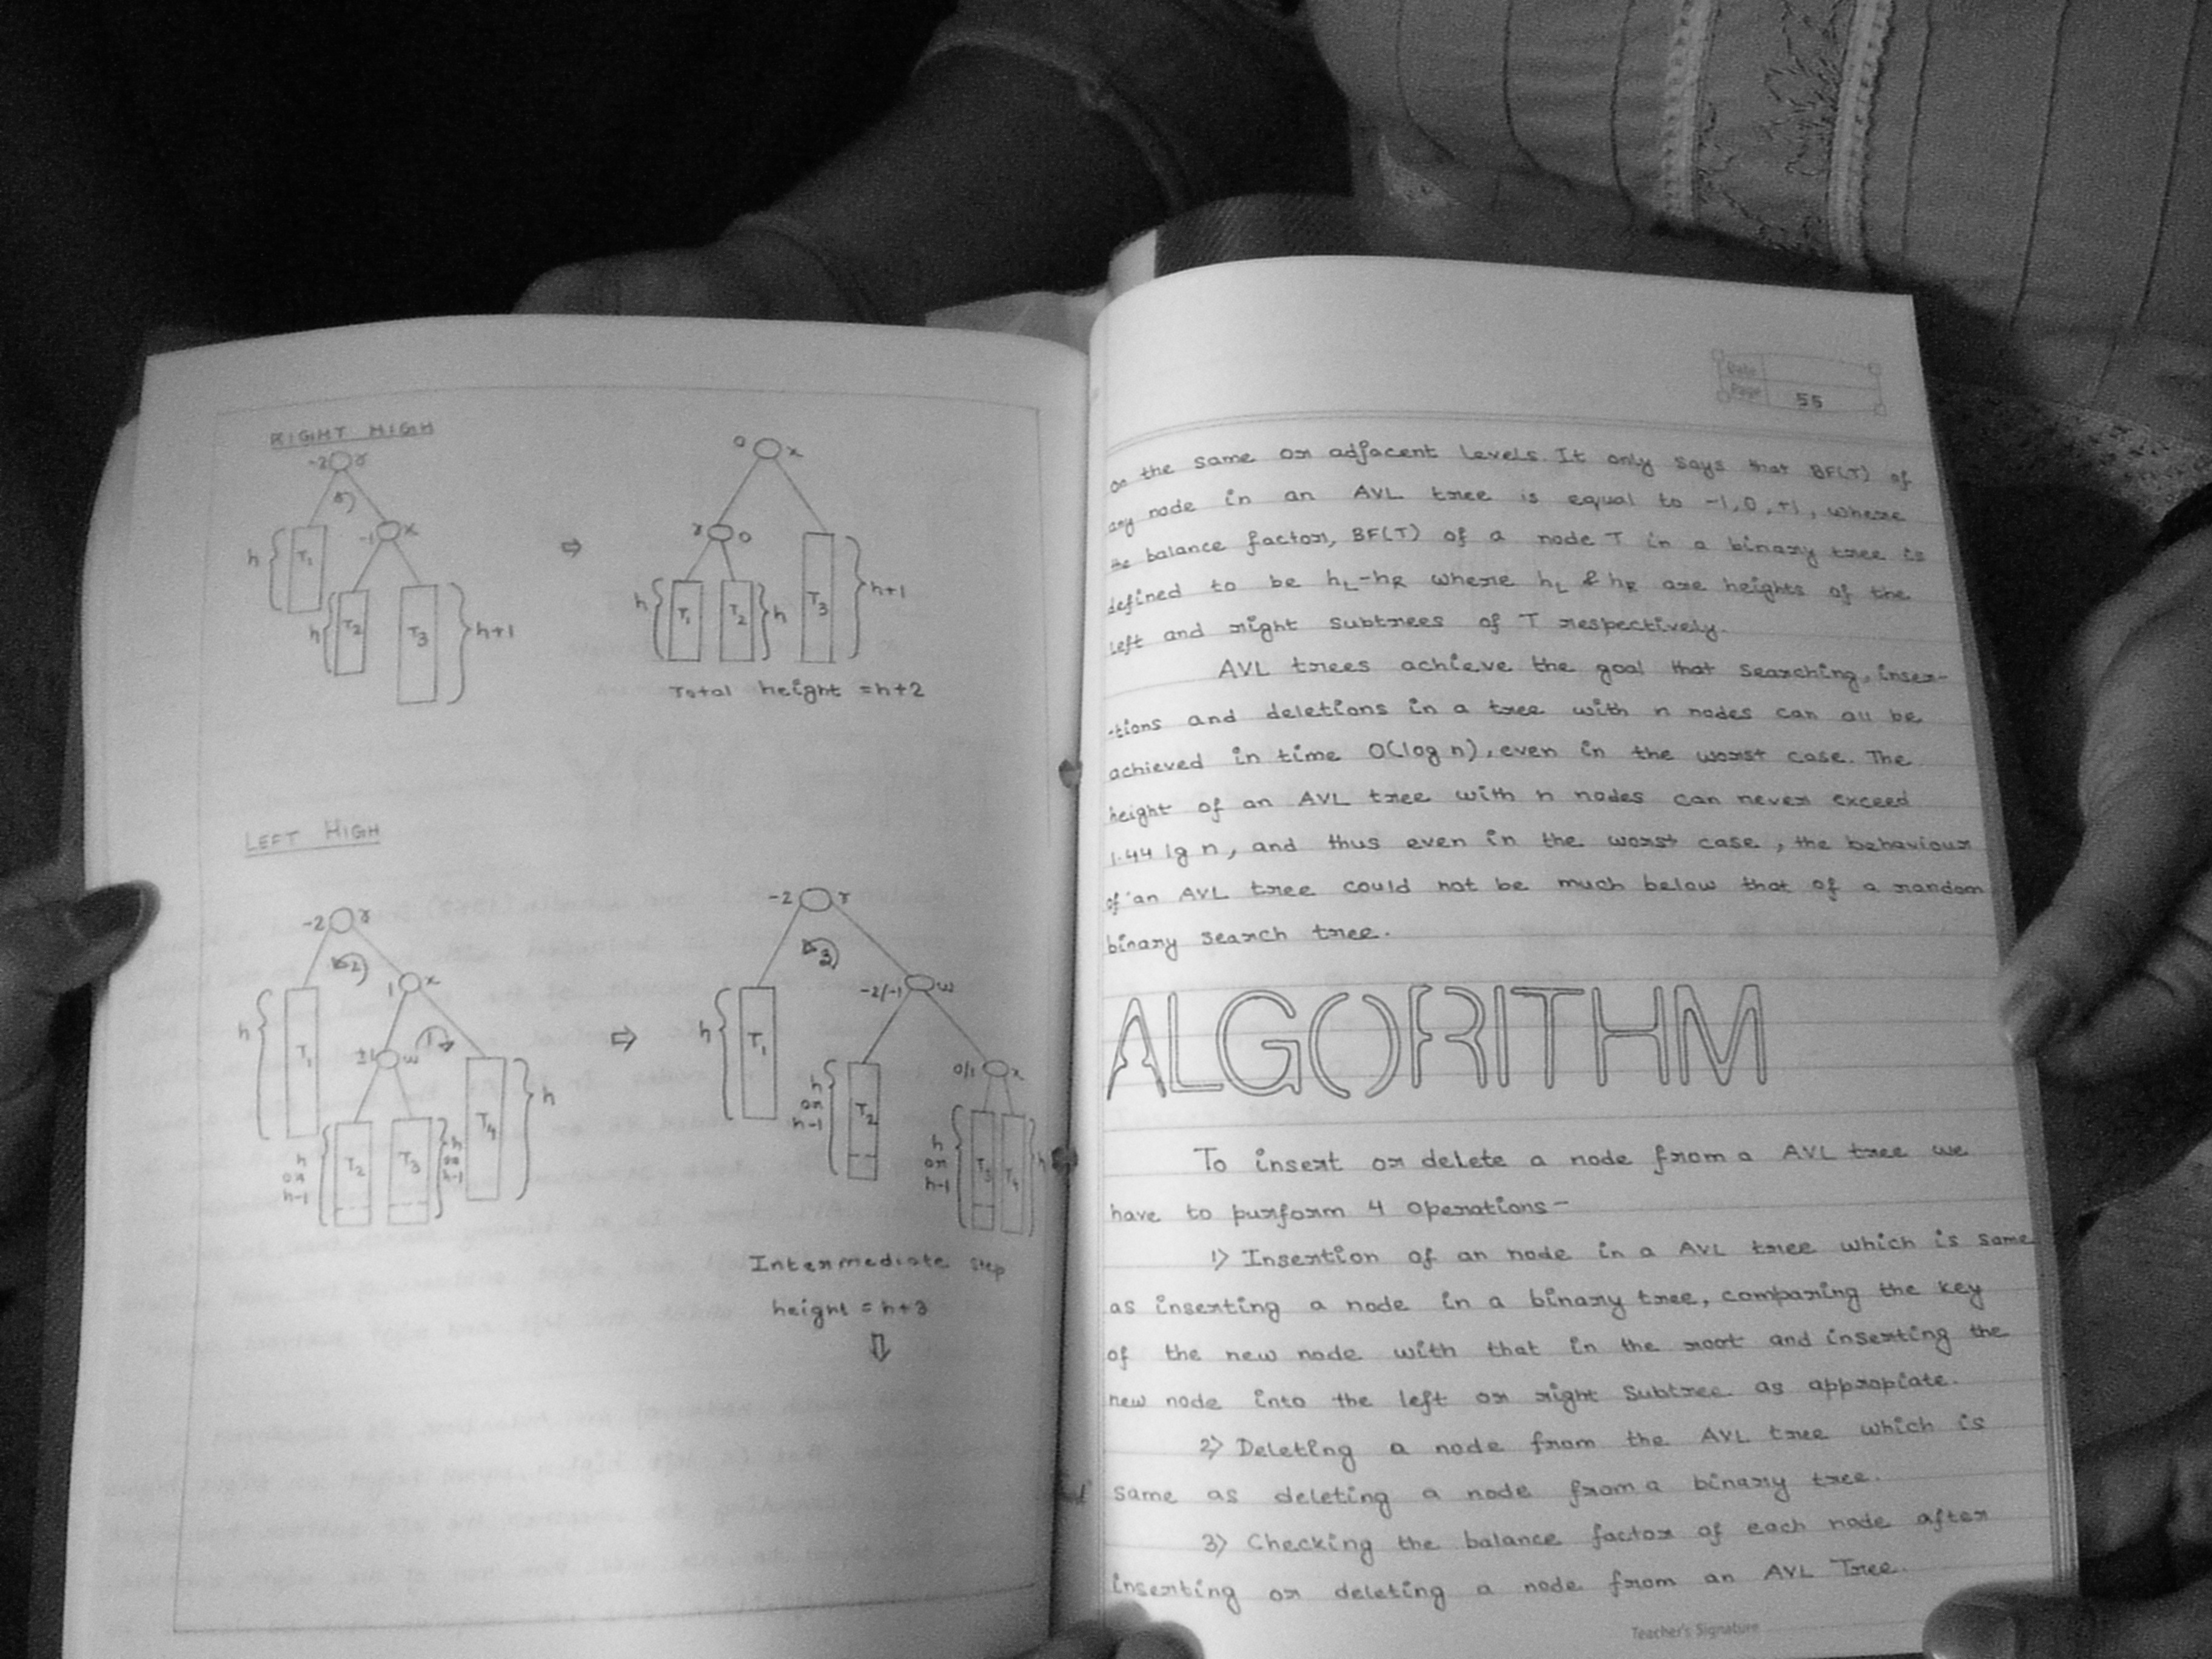 RIGHT HIGH
-2 r
-1 x
h { T1
h { T2
T3 } h+1
⇨
0 x
r 0
h { T1
T2 } h
T3 } h+1
Total height = h+2
LEFT HIGH
-2 r
2
1 x
±1 w
1
h { T1
h or h-1 { T2
T3 } h or h-1
T4 } h
⇨
-2 r
3
-2/-1 w
0/1 x
h { T1
h or h-1 { T2
h or h-1 { T3
T4 } h
Intermediate step
height = h+3
⇩
Date
Page 55
on the same or adjacent levels. It only says that BF(T) of
any node in an AVL tree is equal to -1, 0, +1, where
the balance factor, BF(T) of a node T in a binary tree is
defined to be hL-hR where hL & hR are heights of the
left and right subtrees of T respectively.
AVL trees achieve the goal that searching, inser-
-tions and deletions in a tree with n nodes can all be
achieved in time O(log n), even in the worst case. The
height of an AVL tree with n nodes can never exceed
1.44 lg n, and thus even in the worst case, the behaviour
of an AVL tree could not be much below that of a random
binary search tree.
ALGORITHM
To insert or delete a node from a AVL tree we
have to purform 4 operations-
1) Insertion of an node in a AVL tree which is same
as inserting a node in a binary tree, comparing the key
of the new node with that in the root and inserting the
new node into the left or right subtree as appropiate.
2) Deleting a node from the AVL tree which is
same as deleting a node from a binary tree.
3) Checking the balance factor of each node after
inserting or deleting a node from an AVL Tree.
Teacher's Signature